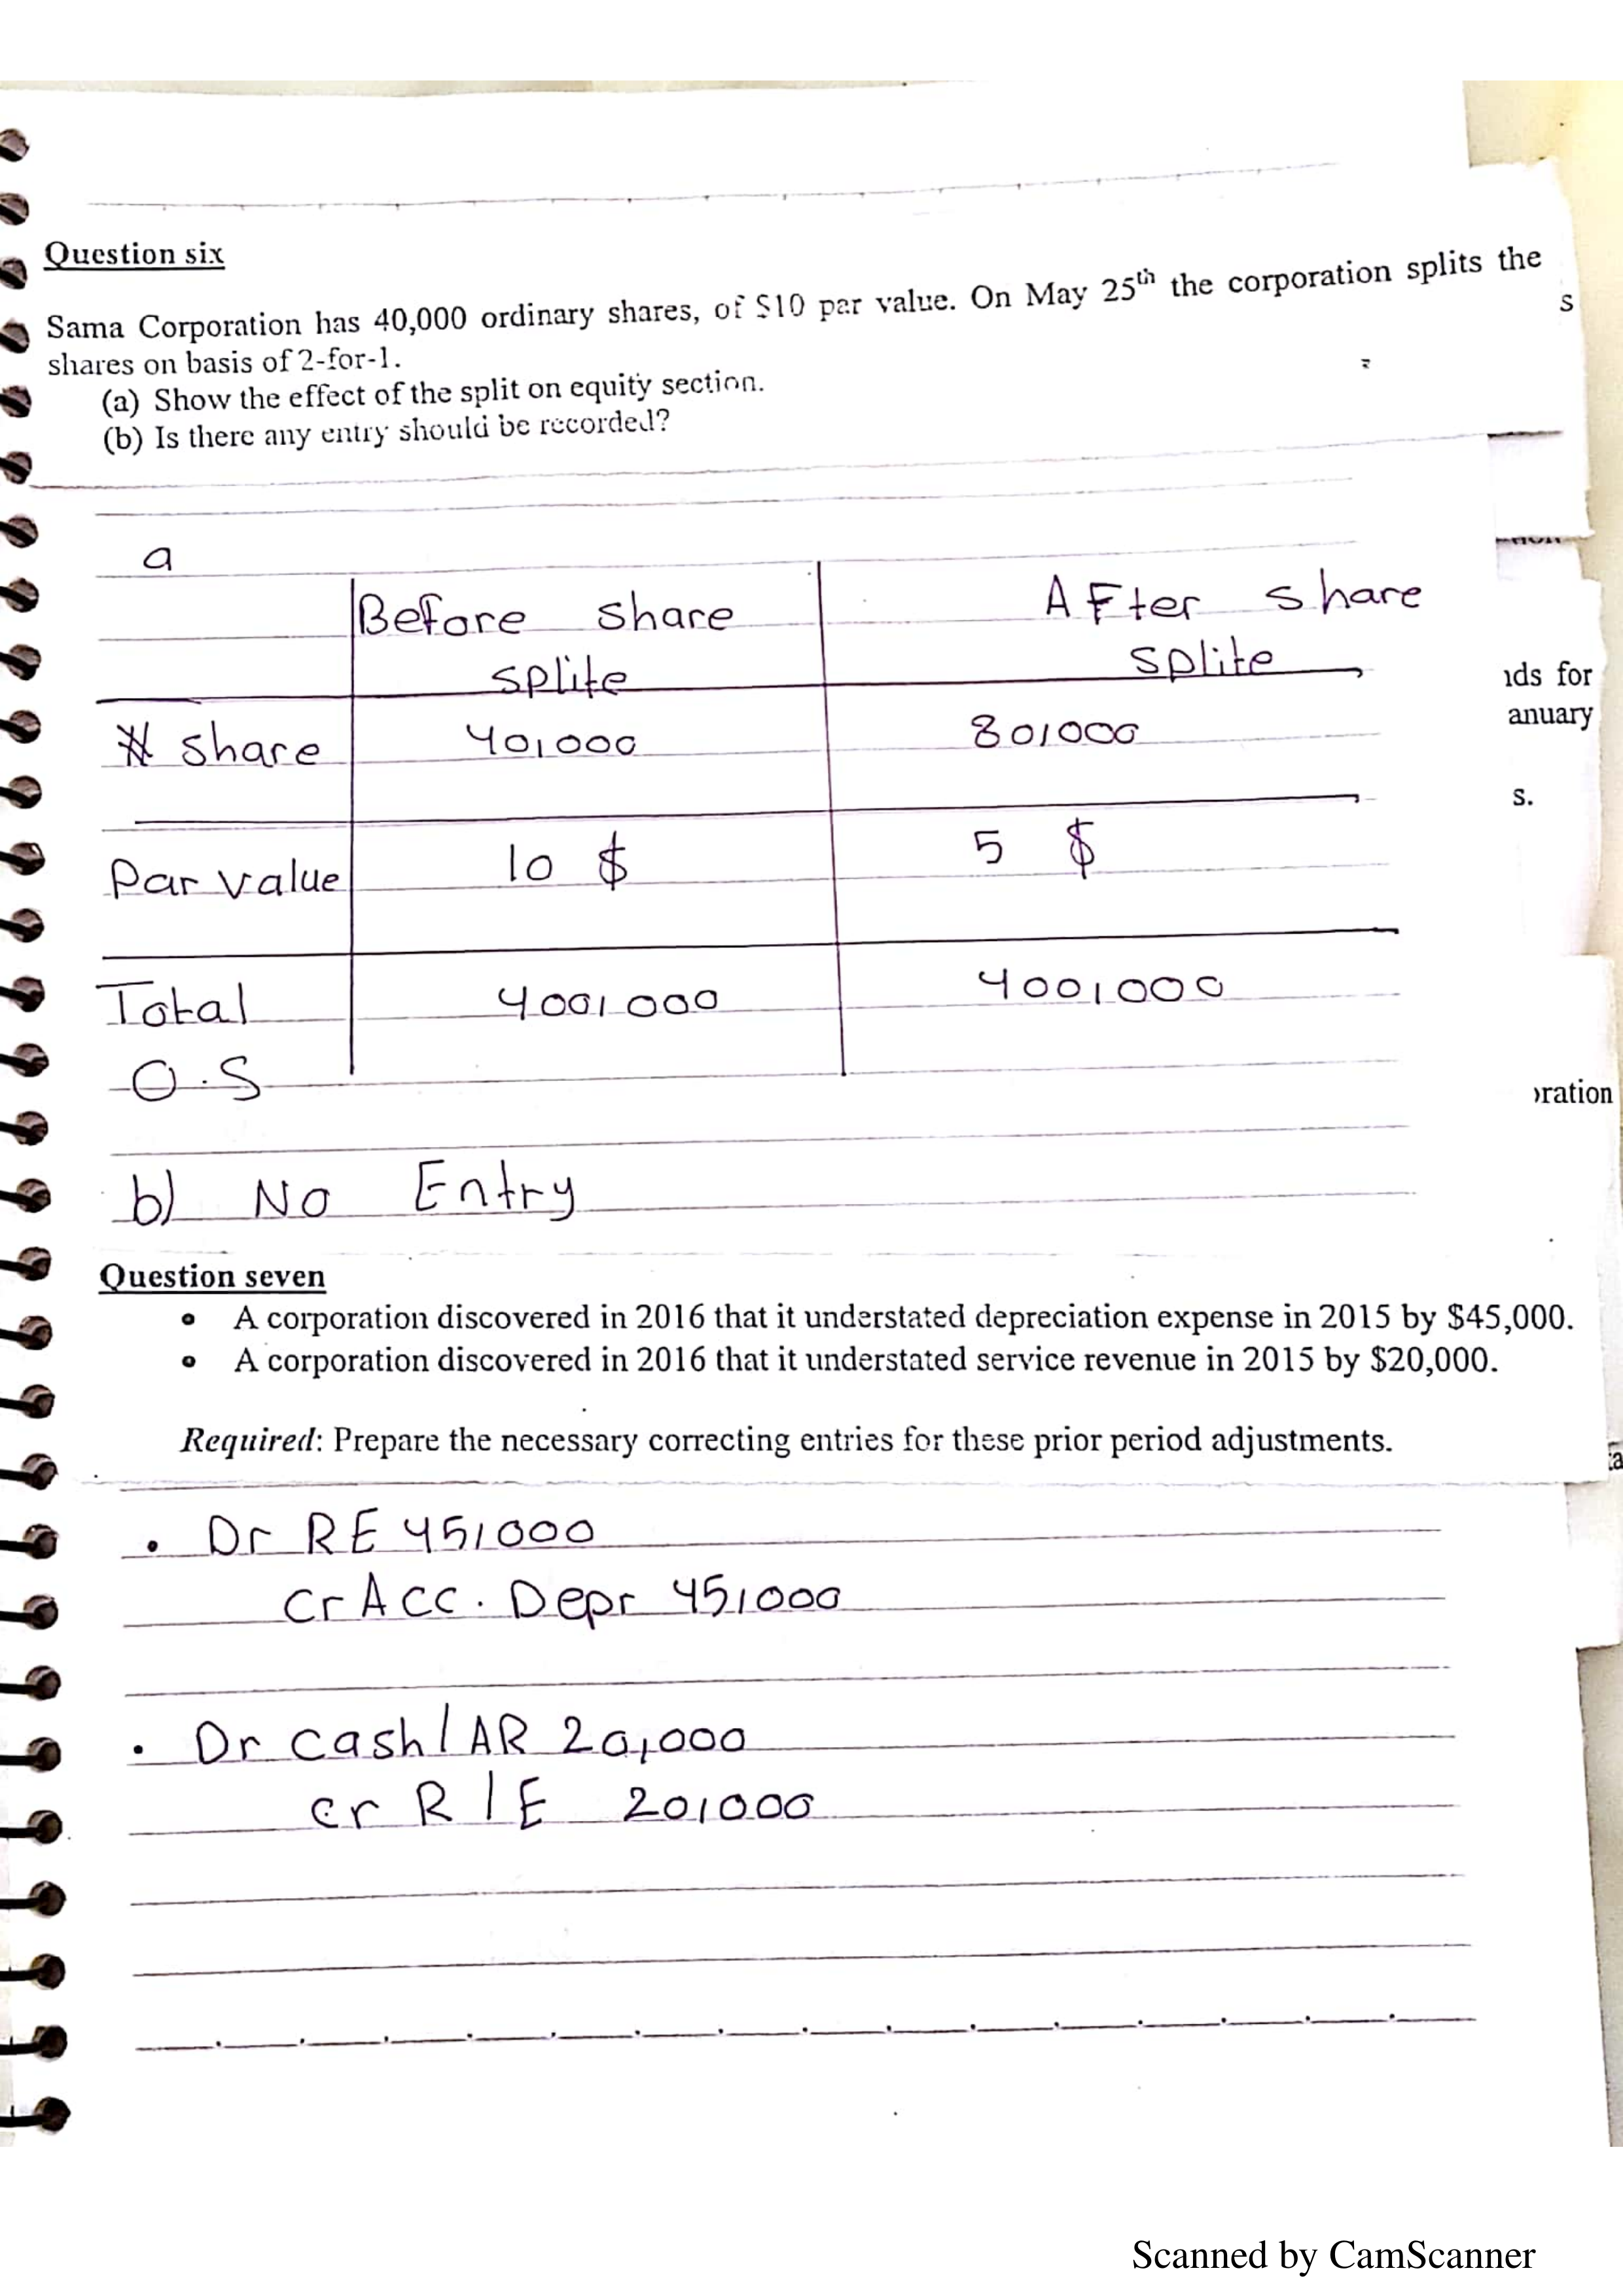 Question six
Sama Corporation has 40,000 ordinary shares, of $10 par value. On May 25th the corporation splits the
s
shares on basis of 2-for-1.
(a) Show the effect of the split on equity section.
(b) Is there any entry should be recorded?
a
Before share splite
AFter share splite
# share 40,000 80,000
Par value 10 $ 5 $
Total O.S 400,000 400,000
ids for
anuary
s.
oration
b) No Entry
Question seven
• A corporation discovered in 2016 that it understated depreciation expense in 2015 by $45,000.
• A corporation discovered in 2016 that it understated service revenue in 2015 by $20,000.
Required: Prepare the necessary correcting entries for these prior period adjustments.
. Dr RE 45,000
cr Acc. Depr 45,000
. Dr cash/AR 20,000
cr R/E 20,000
Scanned by CamScanner